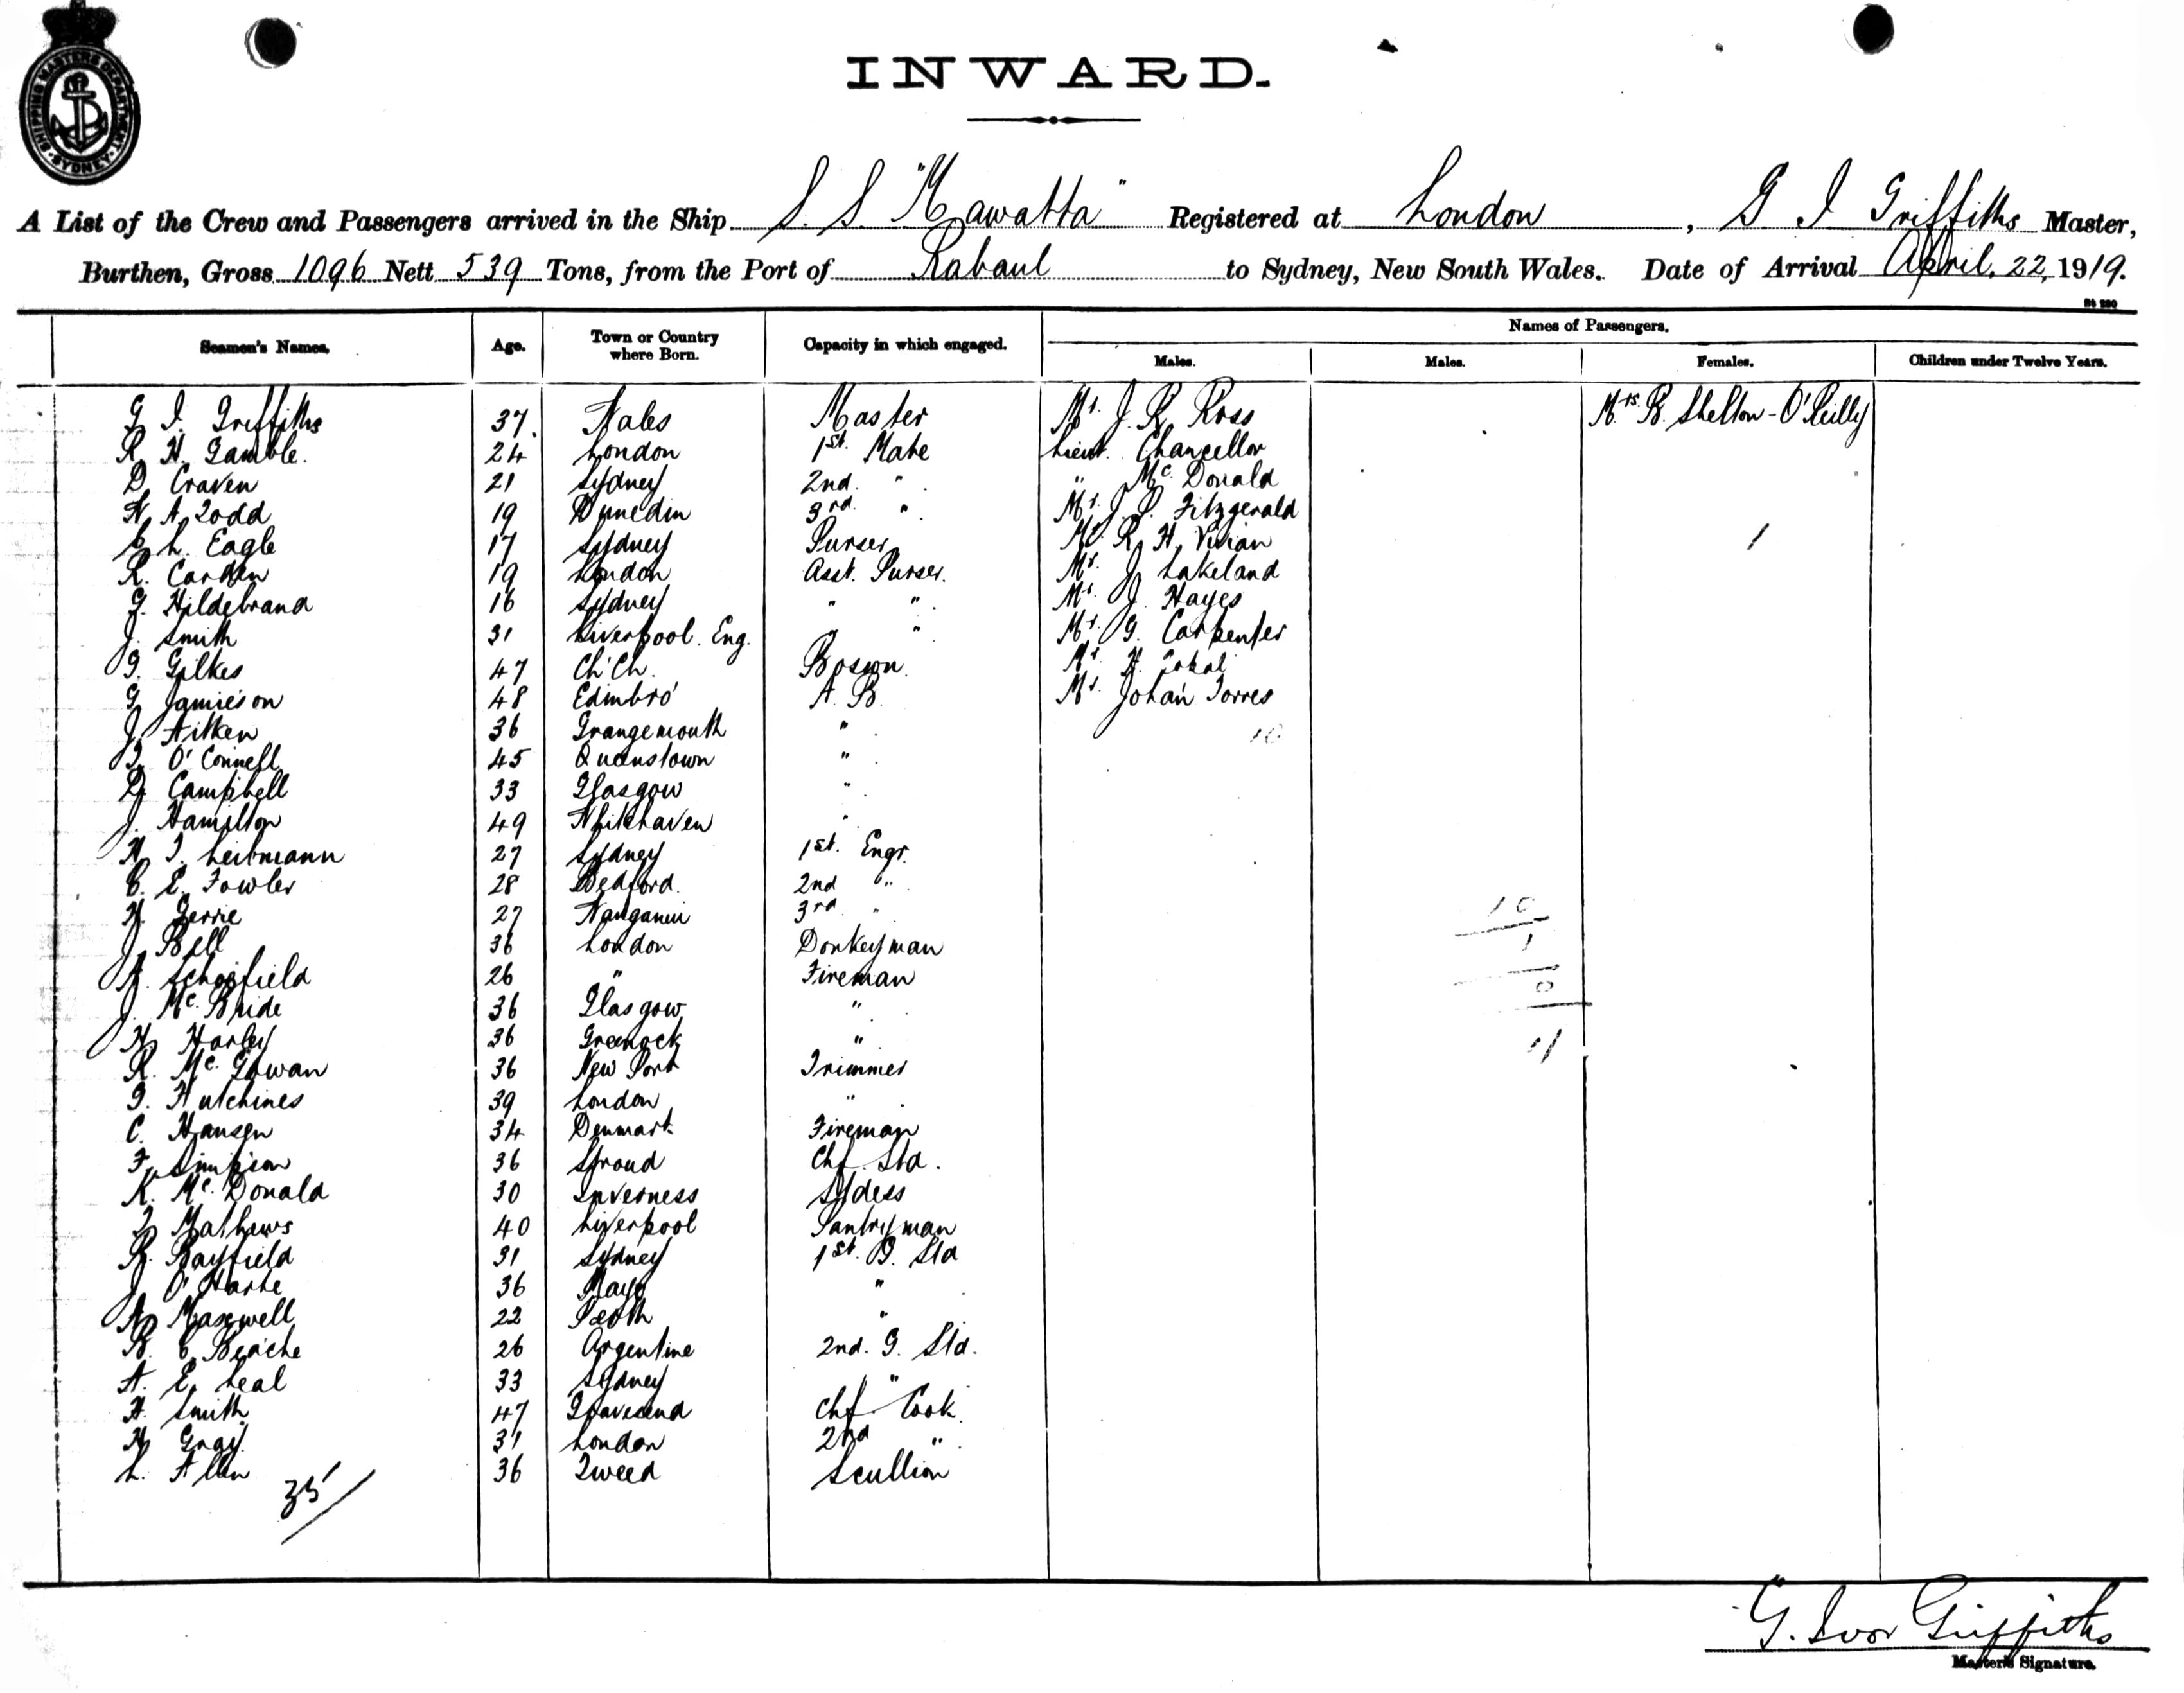 SHIPPING MASTERS DEPARTMENT SYDNEY
INWARD.
A List of the Crew and Passengers arrived in the Ship S. S "Mawatta" Registered at London, G I Griffiths Master,
Burthen, Gross 1096 Nett 539 Tons, from the Port of Rabaul to Sydney, New South Wales. Date of Arrival April. 22, 1919.
St 220
Names of Passengers.
Seamen's Names. Age. Town or Country where Born. Capacity in which engaged. Males. Males. Females. Children under Twelve Years.
G I. Griffiths 37. Wales Master Mr. J. R. Ross Mrs. B. Shelton-O'Reilly
R. H. Gamble. 24 London 1st. Mate Lieut. Chancellor
D. Craven 21 Sydney 2nd. " " Mc. Donald
W. A. Todd 19 Dunedin 3rd. " Mr. J. P. Fitzgerald
C. L. Eagle 17 Sydney Purser Mr. R. H. Vivian 1
R. Carden 19 London Asst. Purser. Mr. J. Lakeland
G. Hildebrand 16 Sydney " " Mr. J. Hayes
J. Smith 31 Liverpool. Eng. " " Mr. G. Carpenter
G. Gilkes 47 Ch'Ch. Boswn. Mr. H.
G. Jamieson 48 Edinbro' A. B. Mr. Johan Torres
J. Aitken 36 Grangemouth " 10
T. O'Connell 45 Queenstown "
D. Campbell 33 Glasgow "
J. Hamilton 49 Whitehaven "
H. T. Leibmann 27 Sydney 1st. Engr.
C. E. Fowler 28 Bedford. 2nd "
H. Gerrie 27 Wanganui 3rd. " 10
J. Bell 36 London Donkeyman 1
A. Schofield 26 " Fireman
J. Mc. Bride 36 Glasgow "
H. Harley 36 Greenock " 11
R. Mc. Gowan 36 New Port Trimmer
G. Hutchines 39 London "
C. Hansen 34 Denmark Fireman
F. Simpson 36 Stroud Chf. Std.
K. Mc. Donald 30 Inverness Stdess
T. Mathews 40 Liverpool Pantryman
R. Bayfield 31 Sydney 1st. G. Std
J. O'Harte 36 Mayo "
A. Maxwell 22 Perth "
B. C. Beache 26 Argentine 2nd. G. Std.
A. E. Leal 33 Sydney "
H. Smith 47 Gravesend Chf. Cook.
H. Gray. 31 London 2nd "
L. Allen 36 Tweed Scullion
35
G. Ivor Griffiths
Master's Signature.